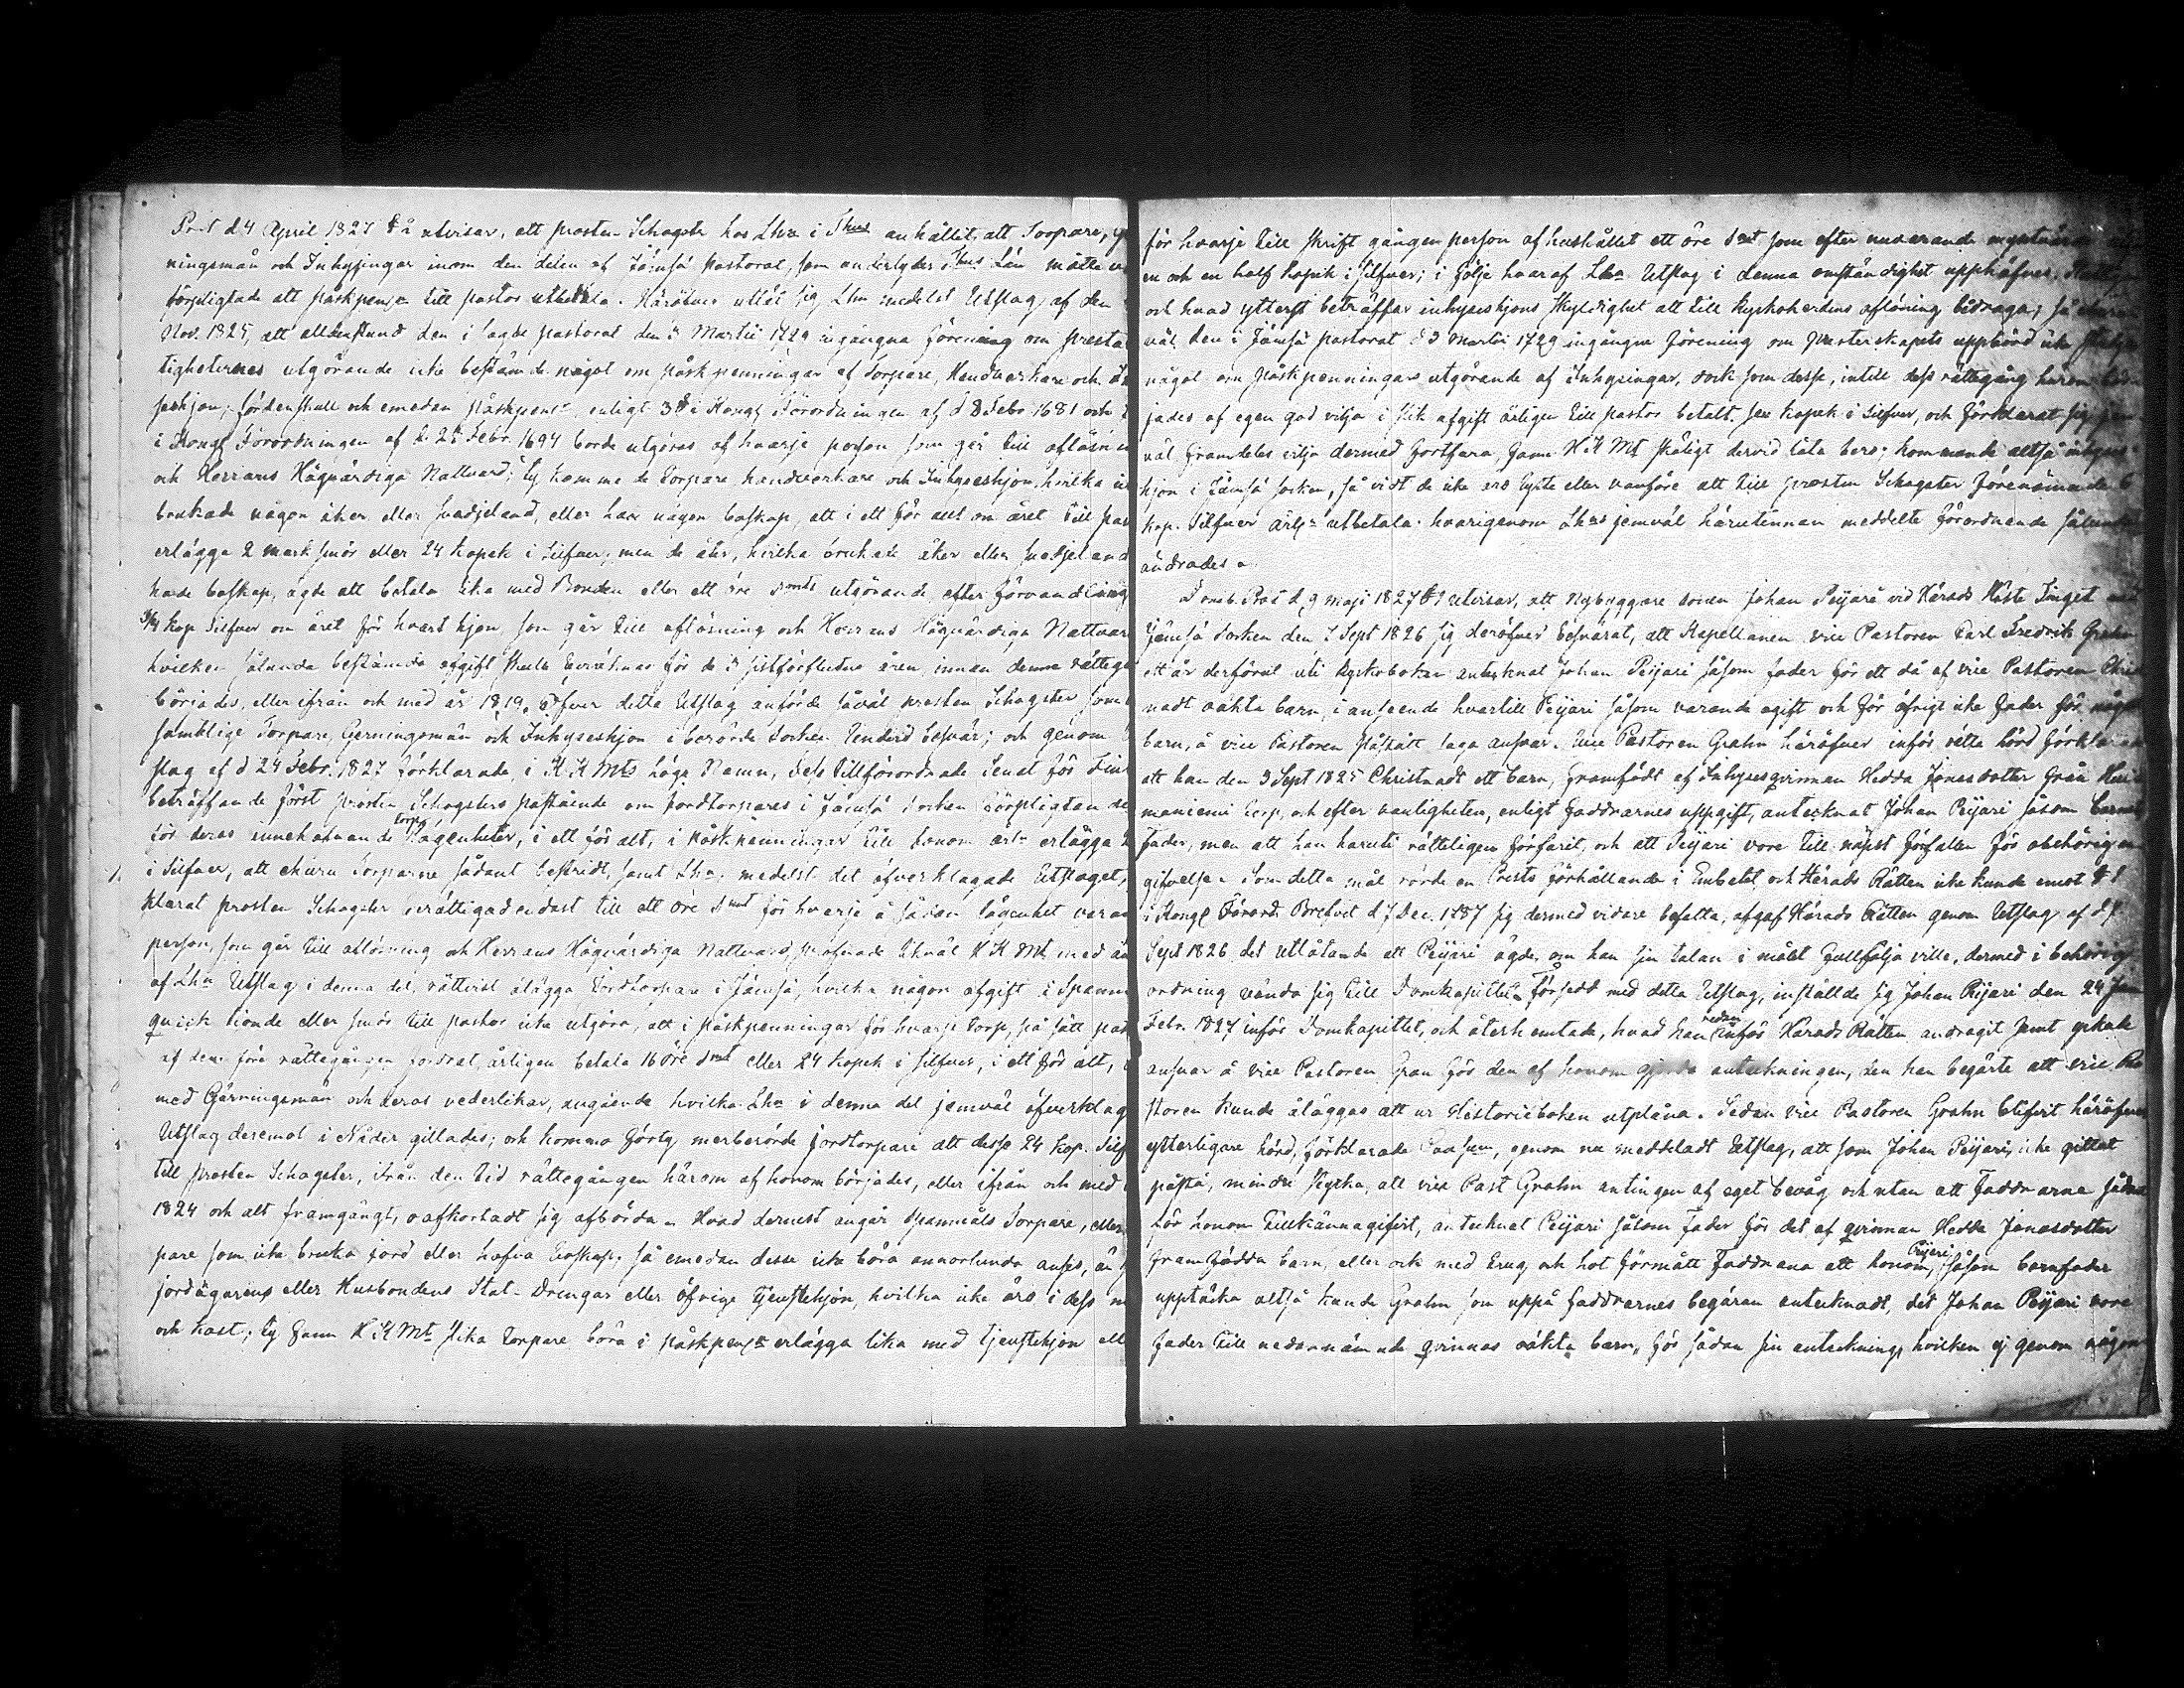 Prot d 4 April 1827 § 2 utvisar, att prosten Schogster hos Lhn i Thus anhållit att Torpare,
ningsmän och Inhysingar inom den delen af Jämsä pastorat, som underlyder Thus Län måtte
förpligtade att påskpengr till pastor utbetala. Häröfver utlät sig Lhn medelst Utslag af den
Nov. 1825, att alldenstund den i sagde pastorat den 3 Martii 1729 ingångna förening om presta
tigheternes utgörande icke bestämde något om påskpenningar af Torpare, Handtverkare och
seshjon; fördenskull och emedan påskpengr enligt 3 § i Kongl Förordningen af d 8 Febr 1681 och
i Kongl Förordningen af d. 28 Febr. 1694 borde utgöras af hvarje person som går till aflösning
och Herrans Högvärdiga Nattvard; Ty komme de Torpare handtverkare och Inhyseshjon, hvilka
brukade någon åker eller svedjeland, eller hav någon boskap, att i ett för allt om året till
erlägga 2 mark smör eller 24 kopek i Silfver; men de åter, hvilka brukade åker eller svedjeland
hade boskap, ägde att betala lika med Bonden eller ett öre Smts utgörande, efter förvandling
3/4 kop Silfver om året för hvart hjon, som går till aflösning och Herrans Högvärdiga Nattvard
hvilken sålunda bestämda afgift skulle beräknas för de 3 sistförflutne åren, innan denna rätteg
börjades, eller ifrån och med år 1819. Öfver detta Utslag anförde såväl prosten Schogster som
samtlige Torpare, Gerningsmän och Inhyseshjon i berörde socken Underd besvär; och genom
slag af d 24 Febr. 1827 förklarade, i K K Mts höga Namn, Dess Tillförordnade Senat för Fin
beträffande först prosten Schogsters påstående om Jordtorpares i Jämsä socken förpligtande
för deras innehafvande Torpslägenheter, i ett för allt, i påskpenningar till honom årl. erlägga
i Silfver, att ehuru Torparne sådant bestridt, samt Lhn, medelst det öfverklagade Utslaget,
klarat prosten Schogster berättigad endast till ett öre Smt för hvarje å sådan lägenhet varan
person, som går till aflösning och Herrans Högvärdiga Nattvard, pröfvade likväl K K Mt, med
af Lhn Utslag i denna del, rättvist ålägga Jordtorpare i Jämsä, hvilka någon afgift i Spanmål
quick tionde eller smör till pastor icke utgöra, att i påskpenningar för hvarje torp, på sätt
af dem före rättegången fordrat, årligen betala 16 öre Smt eller 24 kopek i silfver, i ett för allt,
med Gärningsmän och deras vederlikar, angående hvilka Lhn i denna del jemväl öfverklag
Utslag deremot i Nåder gillades; och komma förty merberörde Jordtorpare att desse 24 kop. Silf
till prosten Schogster, ifrån den tid rättegången härom af honom börjades, eller ifrån och med
1824 och allt framgångt, oafkortadt sig afbörda. Hvad dernest angår spanmåls Torpare, eller
pare som icke bruka jord eller hafva boskap; så emedan desse icke böra annorlunda anses, än
jordägarens eller Husbondens Stat-Drengar eller öfrige Tjenstehjon, hvilka icke äro i dess
och kost; Ty fann K K Mt slika Torpare böra i påskpengr erlägga lika med tjenstehjon
för hvarje till skrift gången person af hushållet ett öre Smt som efter nuvarande
en och en half kopek i silfver; i följe hvaraf Lhn Utslag i denna omständighet upphäfves.
och hvad ytterst beträffar inhyseshjons skyldighet att till kyrkoherdens aflöning bidraga; så
väl den i Jämsä pastorat d 3 Martii 1729 ingångne förening om Presterskapets uppbörd icke
något om påskpenningars utgörande af Inhysingar, dock som desse, intill dess rättegång härom
jades af egen god vilja i slik afgift årligen till pastor betalt sex kopek i Silfver, och förklarat sig
väl framdeles vilja dermed fortfara, fann K K Mt skäligt dervid låta bero; kommande altså inhyses
hjon i Jämsä socken, så vidt de icke äro lytte eller vanföre att till prosten Schogster förenämnde 6
kop. Silfver årlgn utbetala. hvarigenom Lhns jemväl härutinnan meddelte förordnande sålunda
ändrades.
Domk. Prot d 9 Maji 1827 § 1 utvisar, att Nybyggare sonen Johan Peijari vid Härads Höste Tinget med
Jämsä Socken den 7 Sept 1826 sig deröfver besvärat, att Kapellanen vice Pastoren Carl Fredrik Grahn
ett år derförut uti Kyrkoboken antecknat Johan Peijari såsom fader för ett då af vice Pastoren
nadt oäkta barn, i anseende hvartill Peijari såsom varande ogift och för öfrigt icke fader för något
barn, å vice Pastoren påstått laga ansvar. Vice Pastoren Grahn häröfver inför rätta hörd förklarade
att han den 3 Sept 1825 Christnadt ett barn, framfödt af Inhysesqvinnan Hedda Jonasdotter från
maniemi torp, och efter vanligheten, enligt faddrarnes uppgift, antecknat Johan Peijari såsom barnets
fader, men att han häruti rätteligen förfarit, och att Peijari vore till näpst förfallen för obehörigen
gifvelse. Som detta mål rörde en Prests förhållande i Embetet och Härads Rätten icke kunde emot §
i Kongl Förord. Brefvet d 7 Dec. 1787 sig dermed vidare befatta, afgaf Härads Rätten genom Utslag af d. 7
Sept 1826 det utlåtande att Peijari ägde, om han sin talan i målet fullfölja ville, dermed i behörig
ordning vända sig till Domkapitlet. Försedd med detta Utslag, inställde sig Johan Peijari den 24
Febr. 1827 inför Domkapitlet, och återhemtade, hvad han redan inför Härads Rätten andragit samt yrkade
ansvar å vice Pastoren Gran för den af honom gjorde anteckningen, den han begärte att vice Pa
storen kunde åläggas att ur Historieboken utplåna. Sedan vice Pastoren Grahn blifvit häröfver
ytterligare hörd, förklarade Consm, genom nu meddeladt Utslag, att som Johan Peijari icke gittat
påstå, mindre styrka, att vice Past Grahn antingen af eget bevåg och utan att Faddrarne sådan
för honom tillkännagifvit, antecknat Peijari såsom fader för det af qvinnan Hedda Jonasdotter
framfödda barn, eller ock med trug och hot förmått Faddrarna att honom, Peijari, såsom barnfader
upptäcka altså kunde Grahn som uppå faddrarnes begäran antecknadt, det Johan Peijari vore
fader till nedannämnde qvinnas oäkta barn, för sådan sin anteckning, hvilken ej genom någon